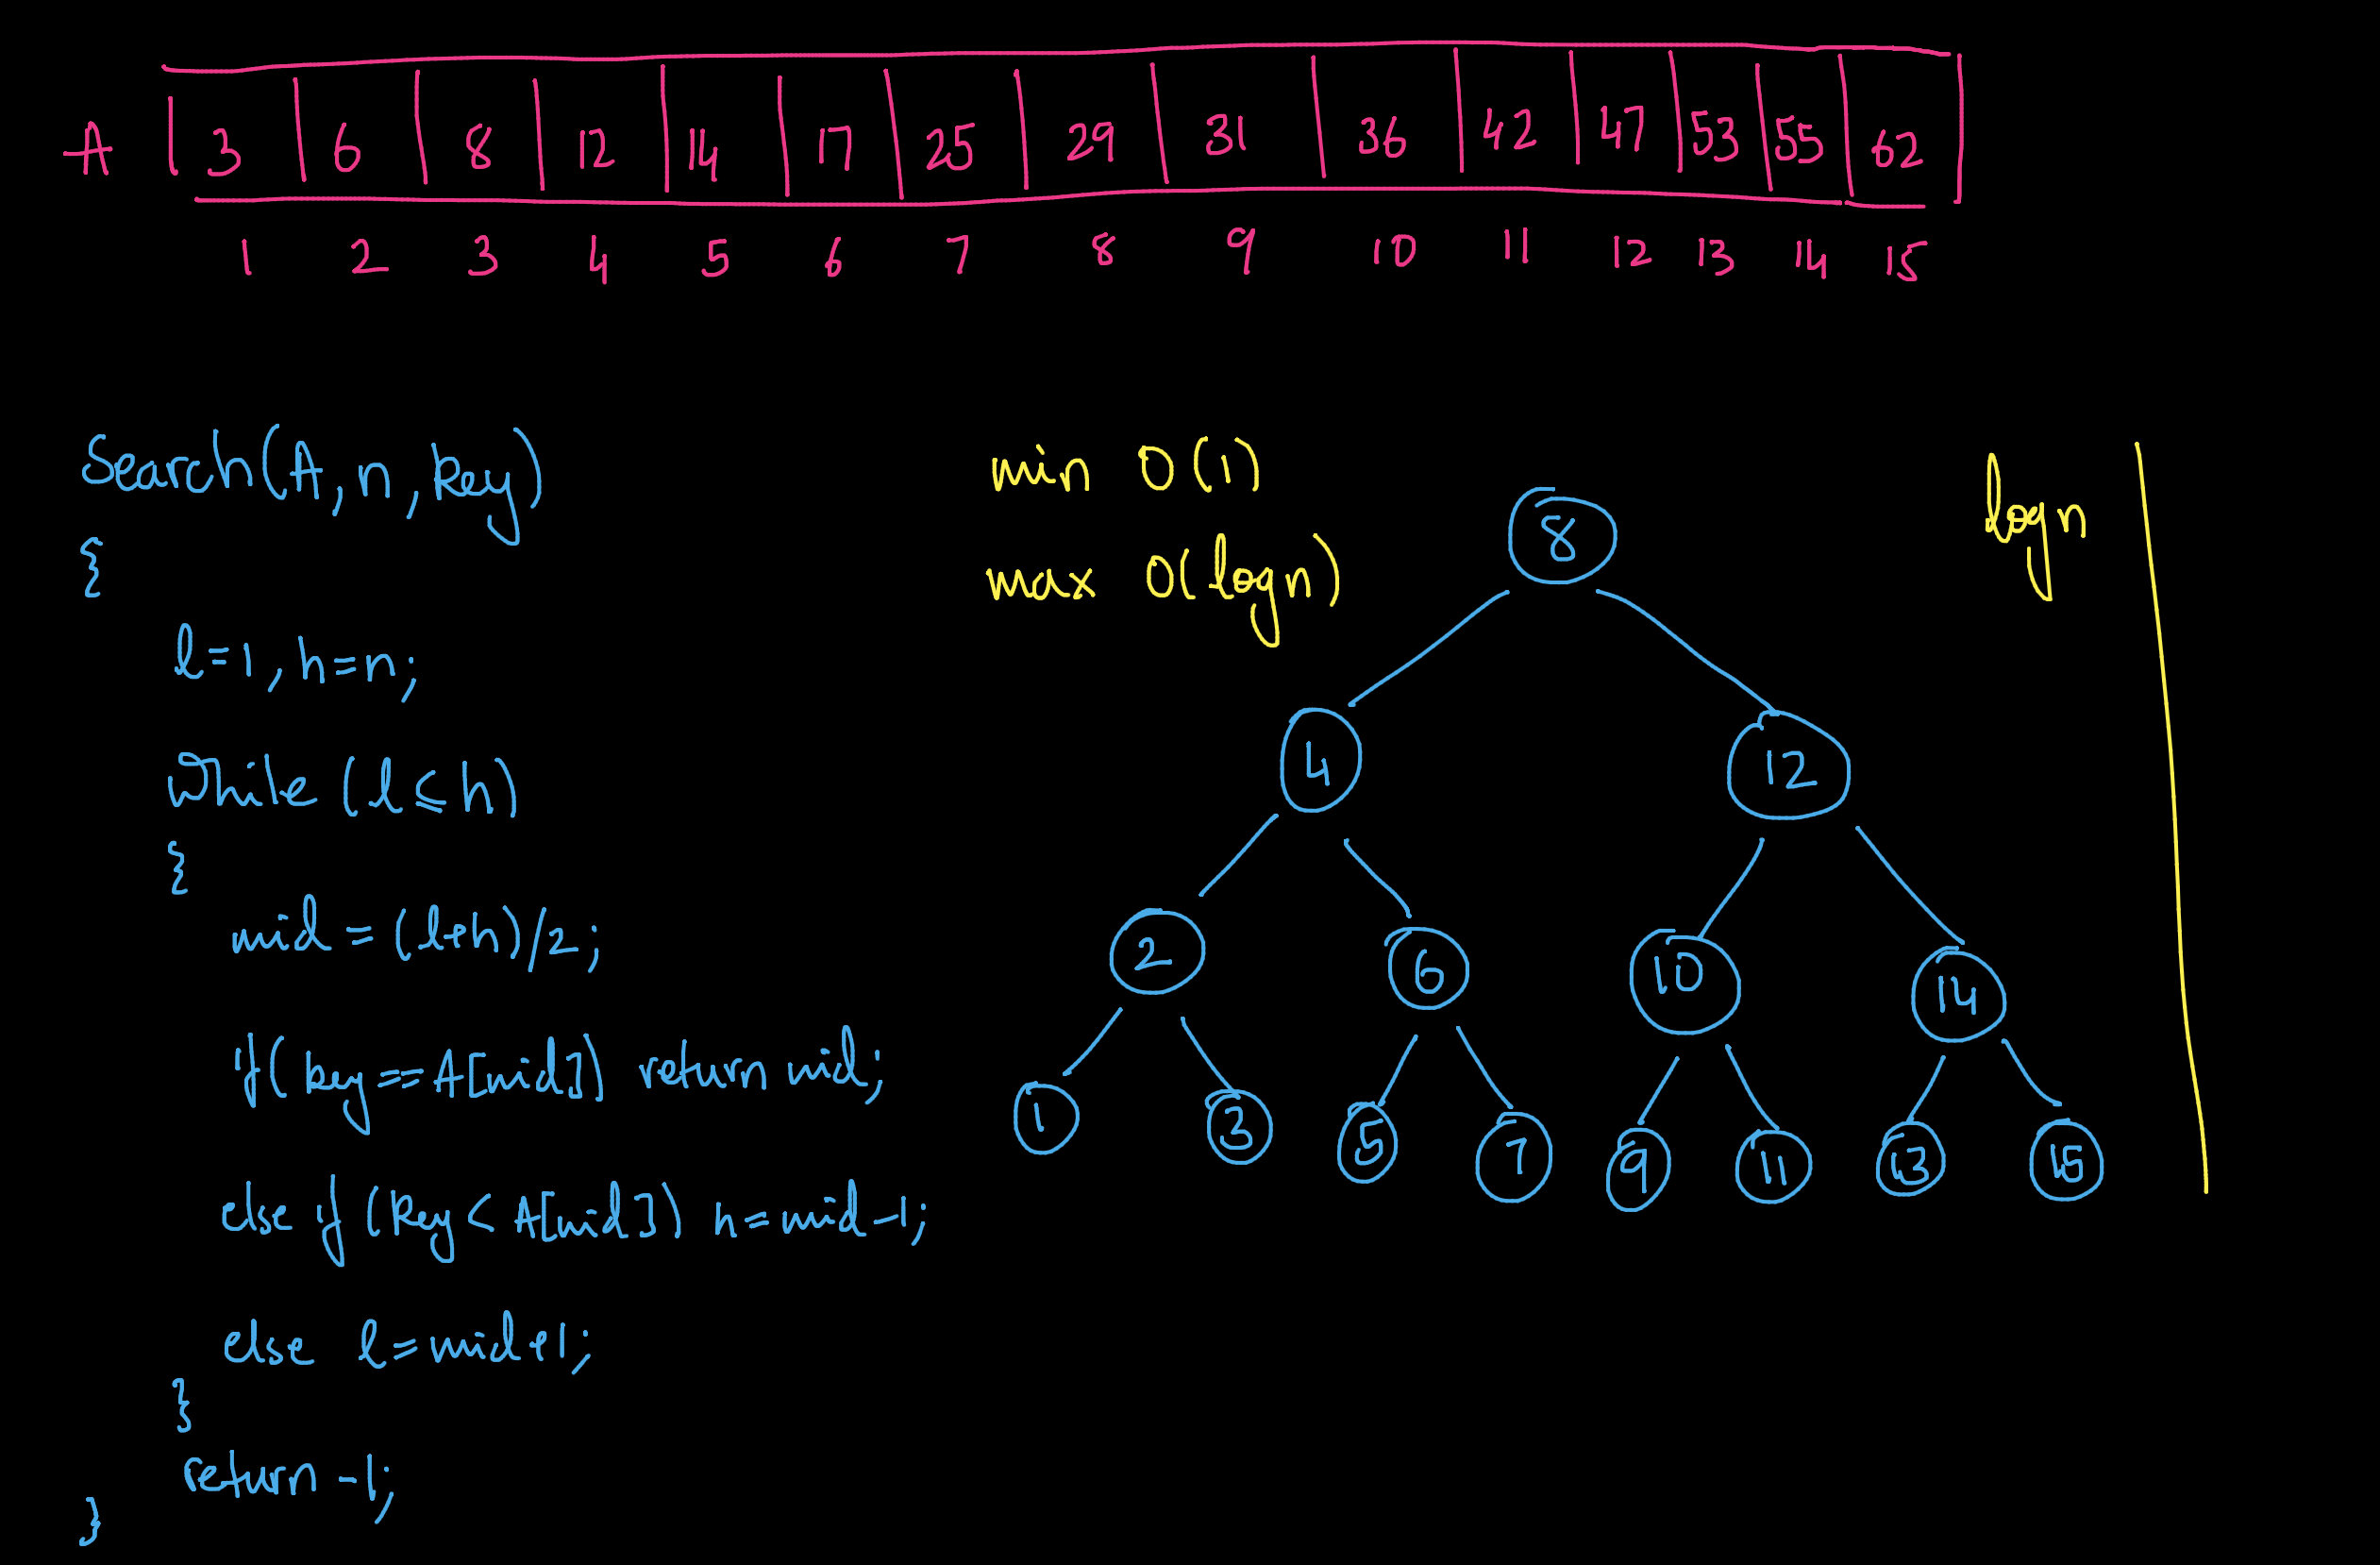 A 3 6 8 12 14 17 25 29 31 36 42 47 53 55 62
1 2 3 4 5 6 7 8 9 10 11 12 13 14 15
Search(A,n,key)
{
l=1,h=n;
While (l≤h)
{
mid=(l+h)/2;
if(key==A[mid]) return mid;
else if (key<A[mid]) h=mid-1;
else l=mid+1;
}
return -1;
}
min O(1)
max O(logn)
logn
8
4 12
2 6 10 14
1 3 5 7 9 11 13 15